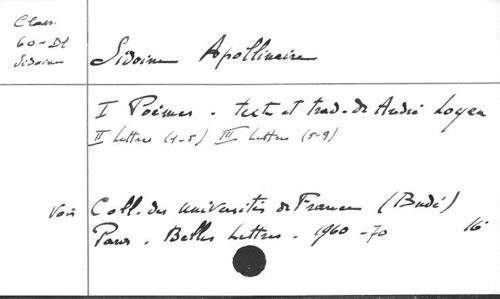 Class.
60-D1
Sidoine
Sidoine Apollinaire
I Poèmes. texte et trad. de André Loyen
II Lettres (1-5) III Lettres (5-9)
Voir Coll. des Universités de France (Budé)
Paris. Belles Lettres. 1960-70 16°